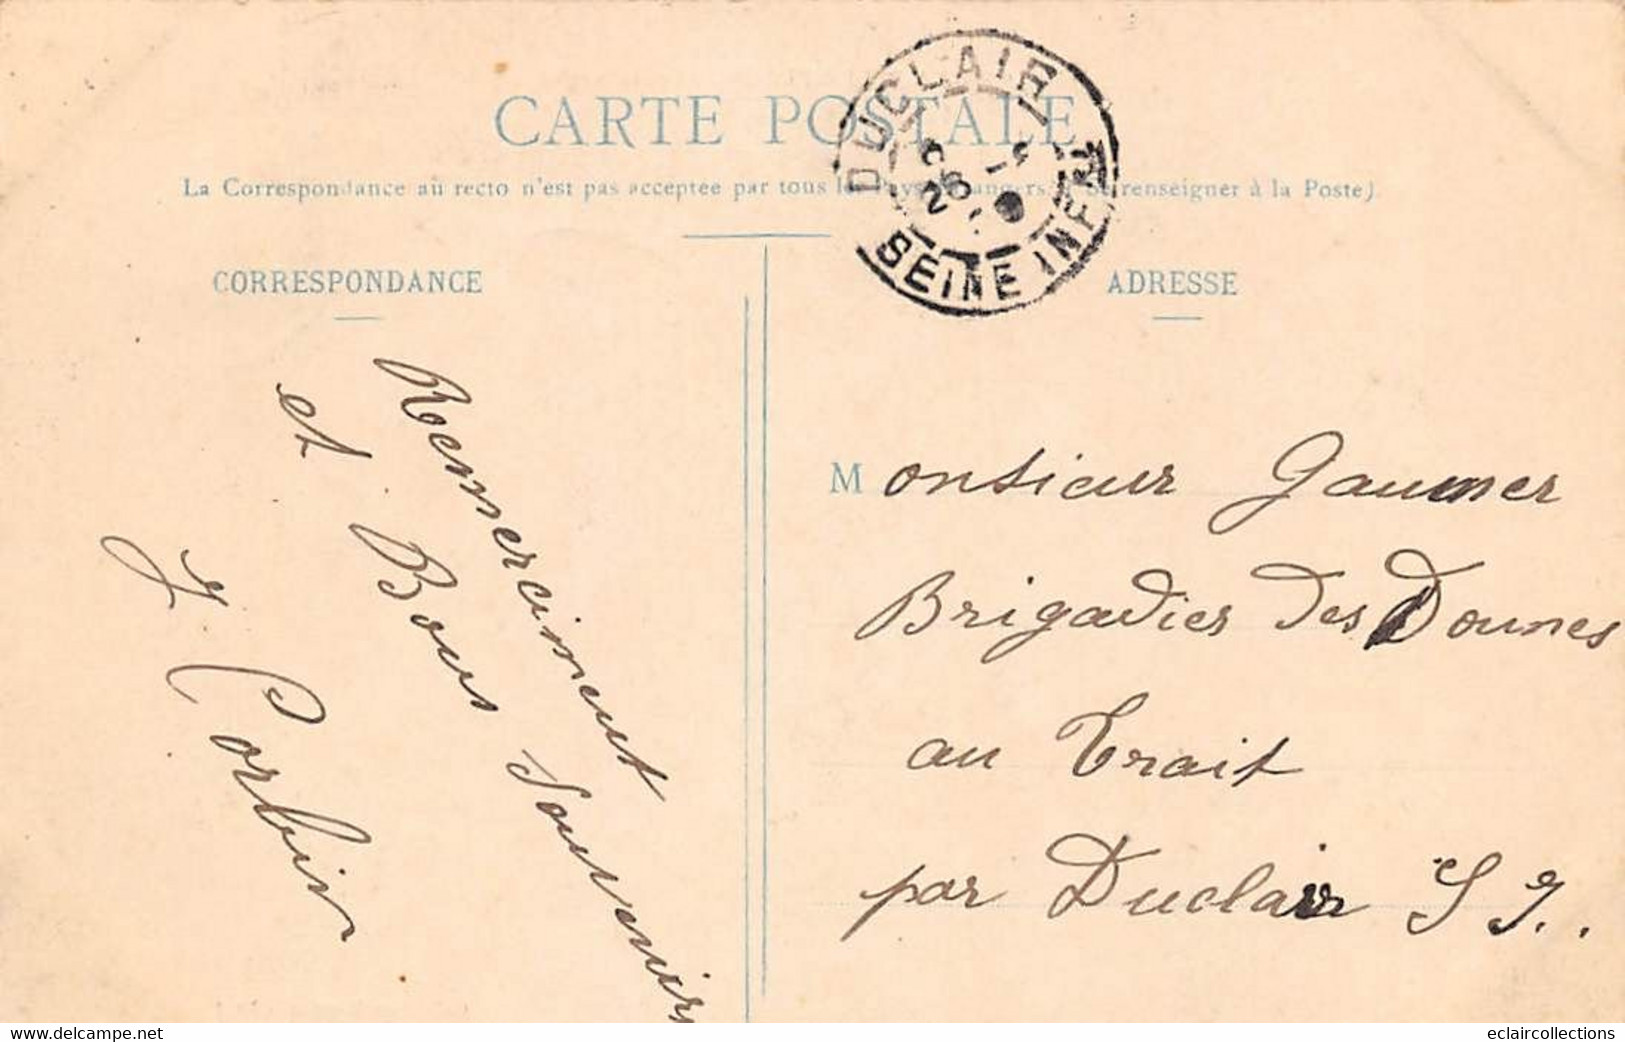 CARTE POSTALE
La Correspondance au recto n'est pas acceptée par tous les pays étrangers. (Se renseigner à la Poste).
CORRESPONDANCE
ADRESSE
DUCLAIR
26
SEINE INFRE
Remerciment
et Bons Souvenirs
J Corbin
Monsieur Gaumer
Brigadier des Dounes
au Trait
par Duclair S I.
www.delcampe.net
eclaircollections